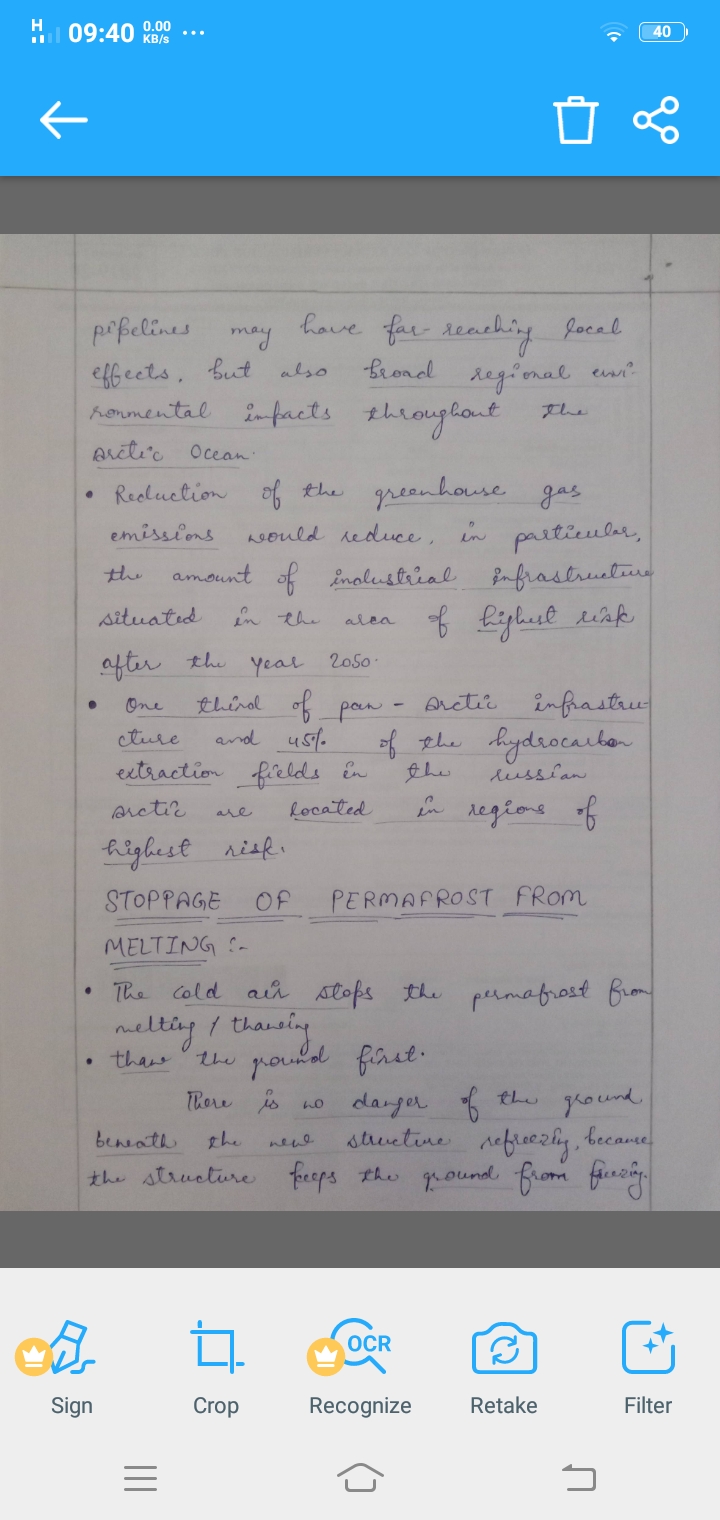 H 09:40 0.00 KB/s ... 40
pipelines may have far-reaching local
effects, but also broad regional envi-
ronmental impacts throughout the
Arctic Ocean.
• Reduction of the greenhouse gas
emissions would reduce, in particular,
the amount of industrial infrastructure
situated in the area of highest risk
after the year 2050.
• One third of pan - Arctic infrastru-
cture and 45% of the hydrocarbon
extraction fields in the russian
Arctic are located in regions of
highest risk.
STOPPAGE OF PERMAFROST FROM
MELTING :-
• The cold air stops the permafrost from
melting / thawing
• thaw the ground first.
There is no danger of the ground
beneath the new structure refreezig, because
the structure keeps the ground from freezig.
Sign Crop OCR Recognize Retake Filter